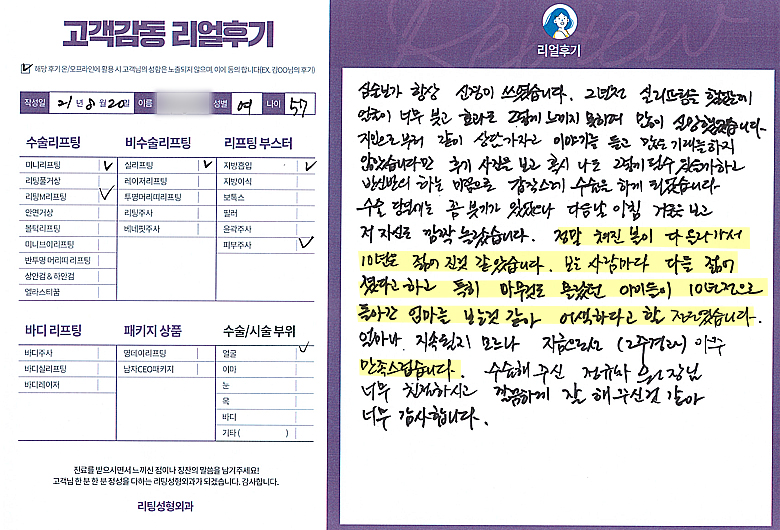 고객감동 리얼후기
해당 후기 온/오프라인에 활용 시 고객님의 성함은 노출되지 않으며, 이에 동의 합니다(EX. 김OO님의 후기)
작성일 21년 8월 20일 이름 성별 여 나이 57
수술리프팅 비수술리프팅 리프팅 부스터
미니리프팅 실리프팅 지방흡입
리팅풀거상 레이저리프팅 지방이식
리팅M리프팅 투명머리띠리프팅 보톡스
안면거상 리팅주사 필러
볼턱리프팅 베네핏주사 윤곽주사
미니브이리프팅 피부주사
반투명 머리띠 리프팅
상안검 & 하안검
엘라스티꿈
바디 리프팅 패키지 상품 수술/시술 부위
바디주사 명데이리프팅 얼굴
바디실리프팅 남자CEO패키지 이마
바디레이저 눈
목
바디
기타 ( )
진료를 받으시면서 느끼신 점이나 칭찬의 말씀을 남기주세요!
고객님 한 분 한 분 정성을 다하는 리팅성형외과가 되겠습니다. 감사합니다.
리팅성형외과
Review
리얼후기
심술보가 항상 신경이 쓰였습니다. 2년전 실리프팅을 했었는데
얼굴이 너무 붓고 효과도 2달에 느끼지 못하여 많이 실망했었습니다.
지인으로부터 같이 상담가자고 이야기를 듣고 많은 기대를하지
않았습니다만 후기 사진을 보고 혹시 나도 그렇게 될수 있을까하고
반신반의 하는 마음으로 갑작스레 수술을 하게 되었습니다
수술 당일에는 좀 붓기가 있었으나 다음날 아침 거울을 보고
저 자신도 깜짝 놀랐습니다. 정말 쳐진 볼이 다 올라가서
10년은 젊어 진것 같았습니다. 보는 사람마다 다들 젊어
졌다고하고 특히 아무것도 몰랐던 아이들이 10년전으로
돌아간 엄마를 보는것 같아 어색하다고 할 정도였습니다.
얼마나 지속될지 모르나 지금으로선 (2주경과) 아주
만족스럽습니다. 수술해 주신 정규사 원장님
너무 친절하시고 깔끔하게 잘 해주신것 같아
너무 감사합니다.